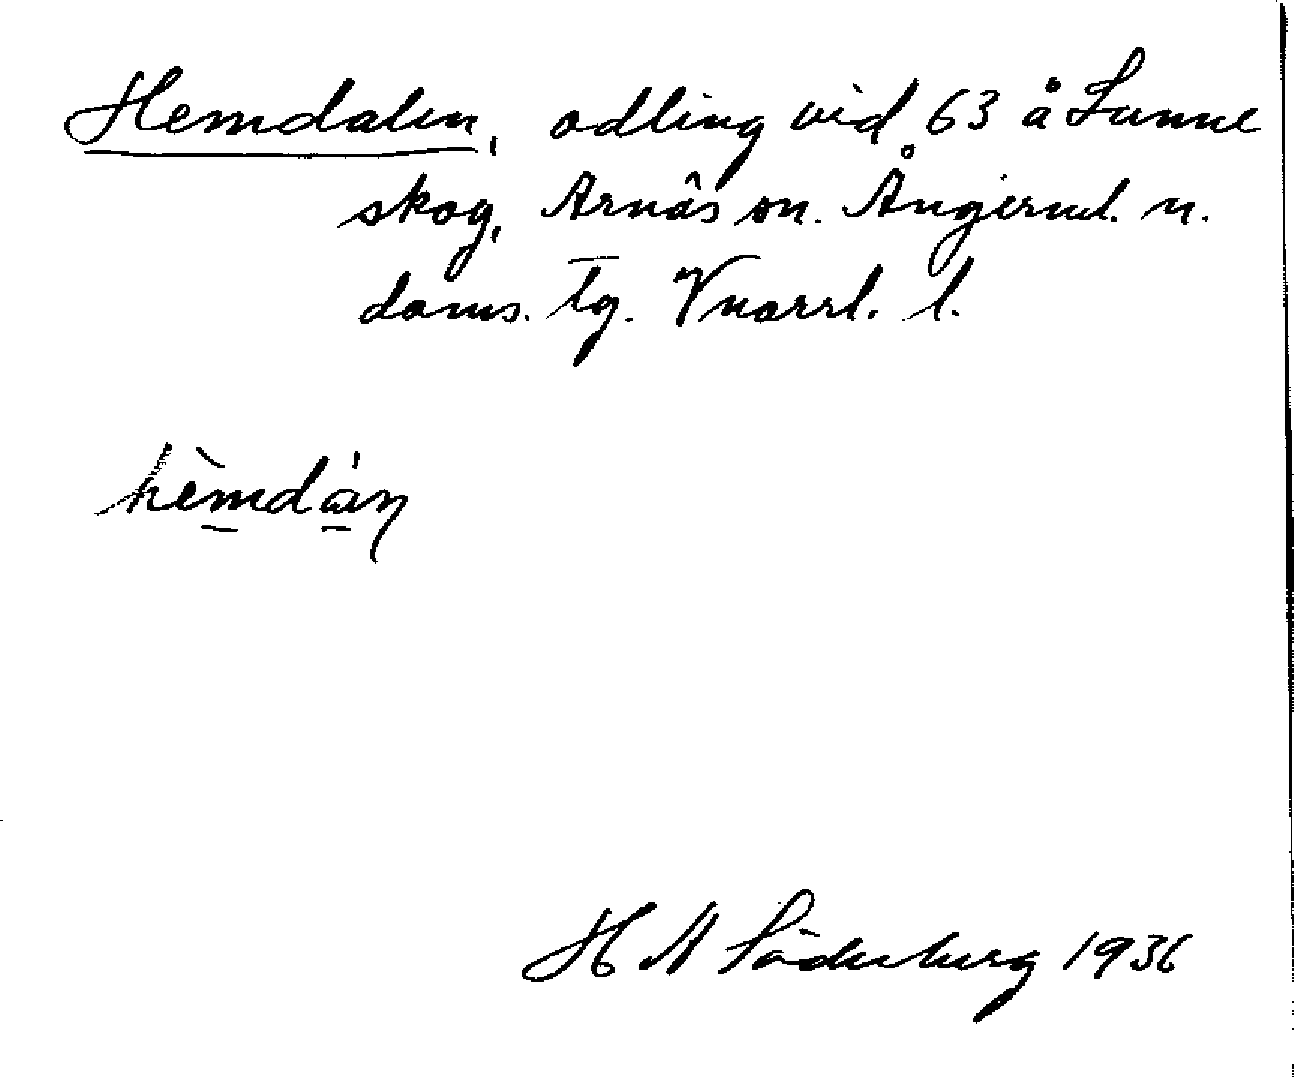 Hemdalen, odling vid 63 å Sunne
skog, Arnäs sn. Ångerml. n.
doms. tg. Vnorrl. l.
hèmdàn
H A Söderberg 1936